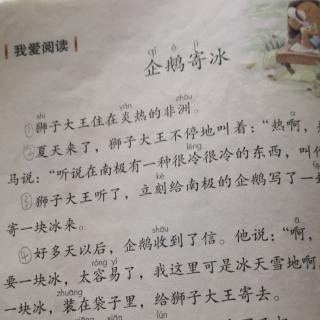 我爱阅读
qǐ é jì
企鹅寄冰
shī yán zhōu
①狮子大王住在炎热的非洲。
②夏天来了，狮子大王不停地叫着：“热啊，
lěng
马说：“听说在南极有一种很冷很冷的东西，叫
kè
③狮子大王听了，立刻给南极的企鹅写了一
寄一块冰来。
④好多天以后，企鹅收到了信。他说：“啊，
róng yì
要一块冰，太容易了，我这里可是冰天雪地啊
zhuāng
一块冰，装在袋子里，给狮子大王寄去。